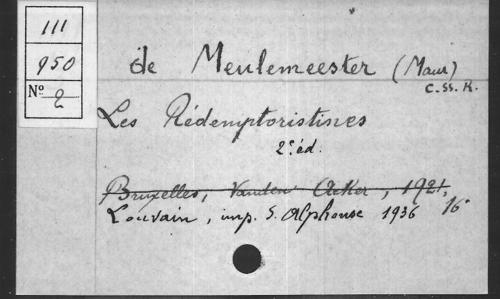 111
950
N° 2
de Meulemeester (Maur)
C. SS. R.
Les Rédemptoristines
2e éd.
Bruxelles, Vanden Acker, 1921,
Louvain, imp. S. Alphonse 1936 16°